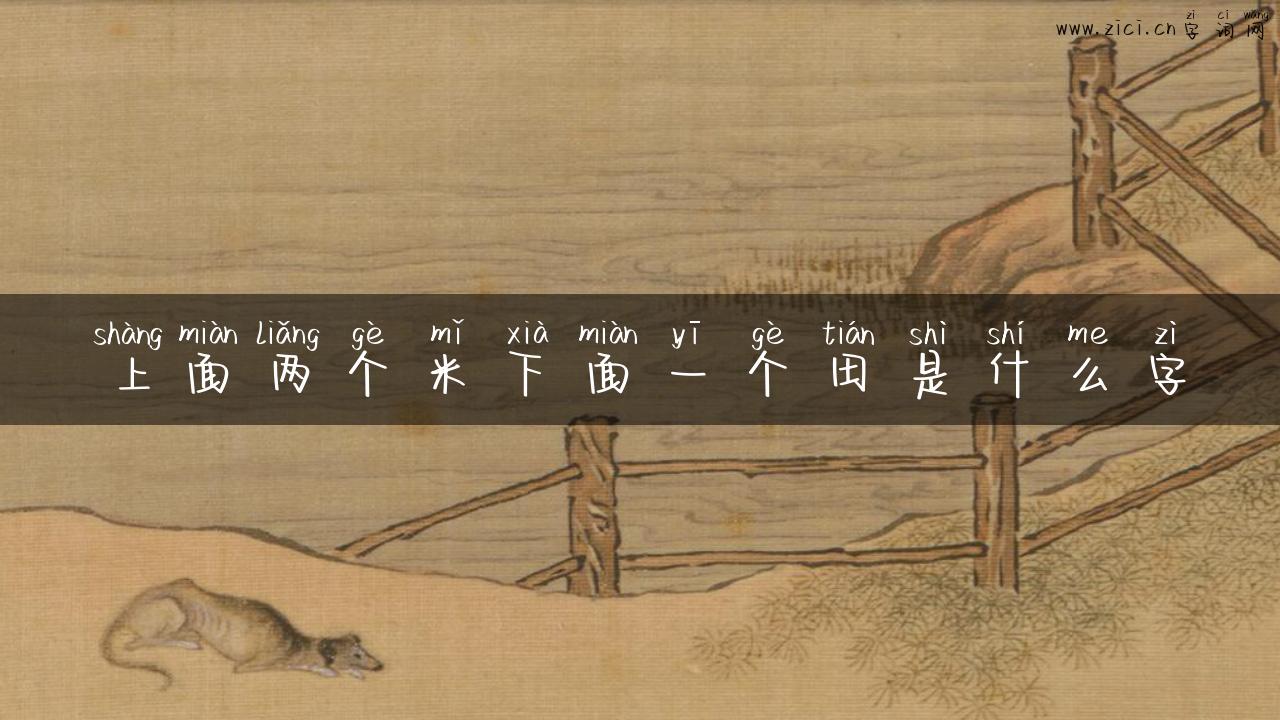 zì cí wǎng
www.zici.cn 字词网
shàng miàn liǎng gè mǐ xià miàn yī gè tián shì shí me zì
上面两个米下面一个田是什么字